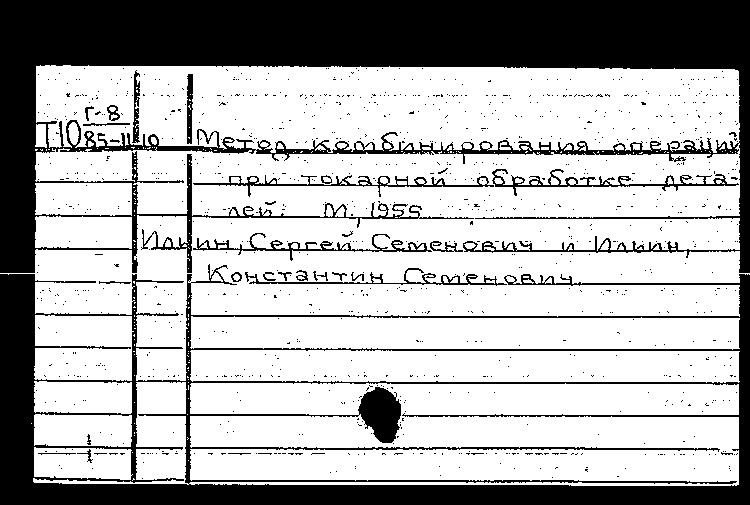 Г-8
Т10 85-11 10 Метод комбинирования операций
при токарной обработке дета-
лей. М., 1955
Ильин, Сергей Семенович и Ильин,
Константин Семенович.